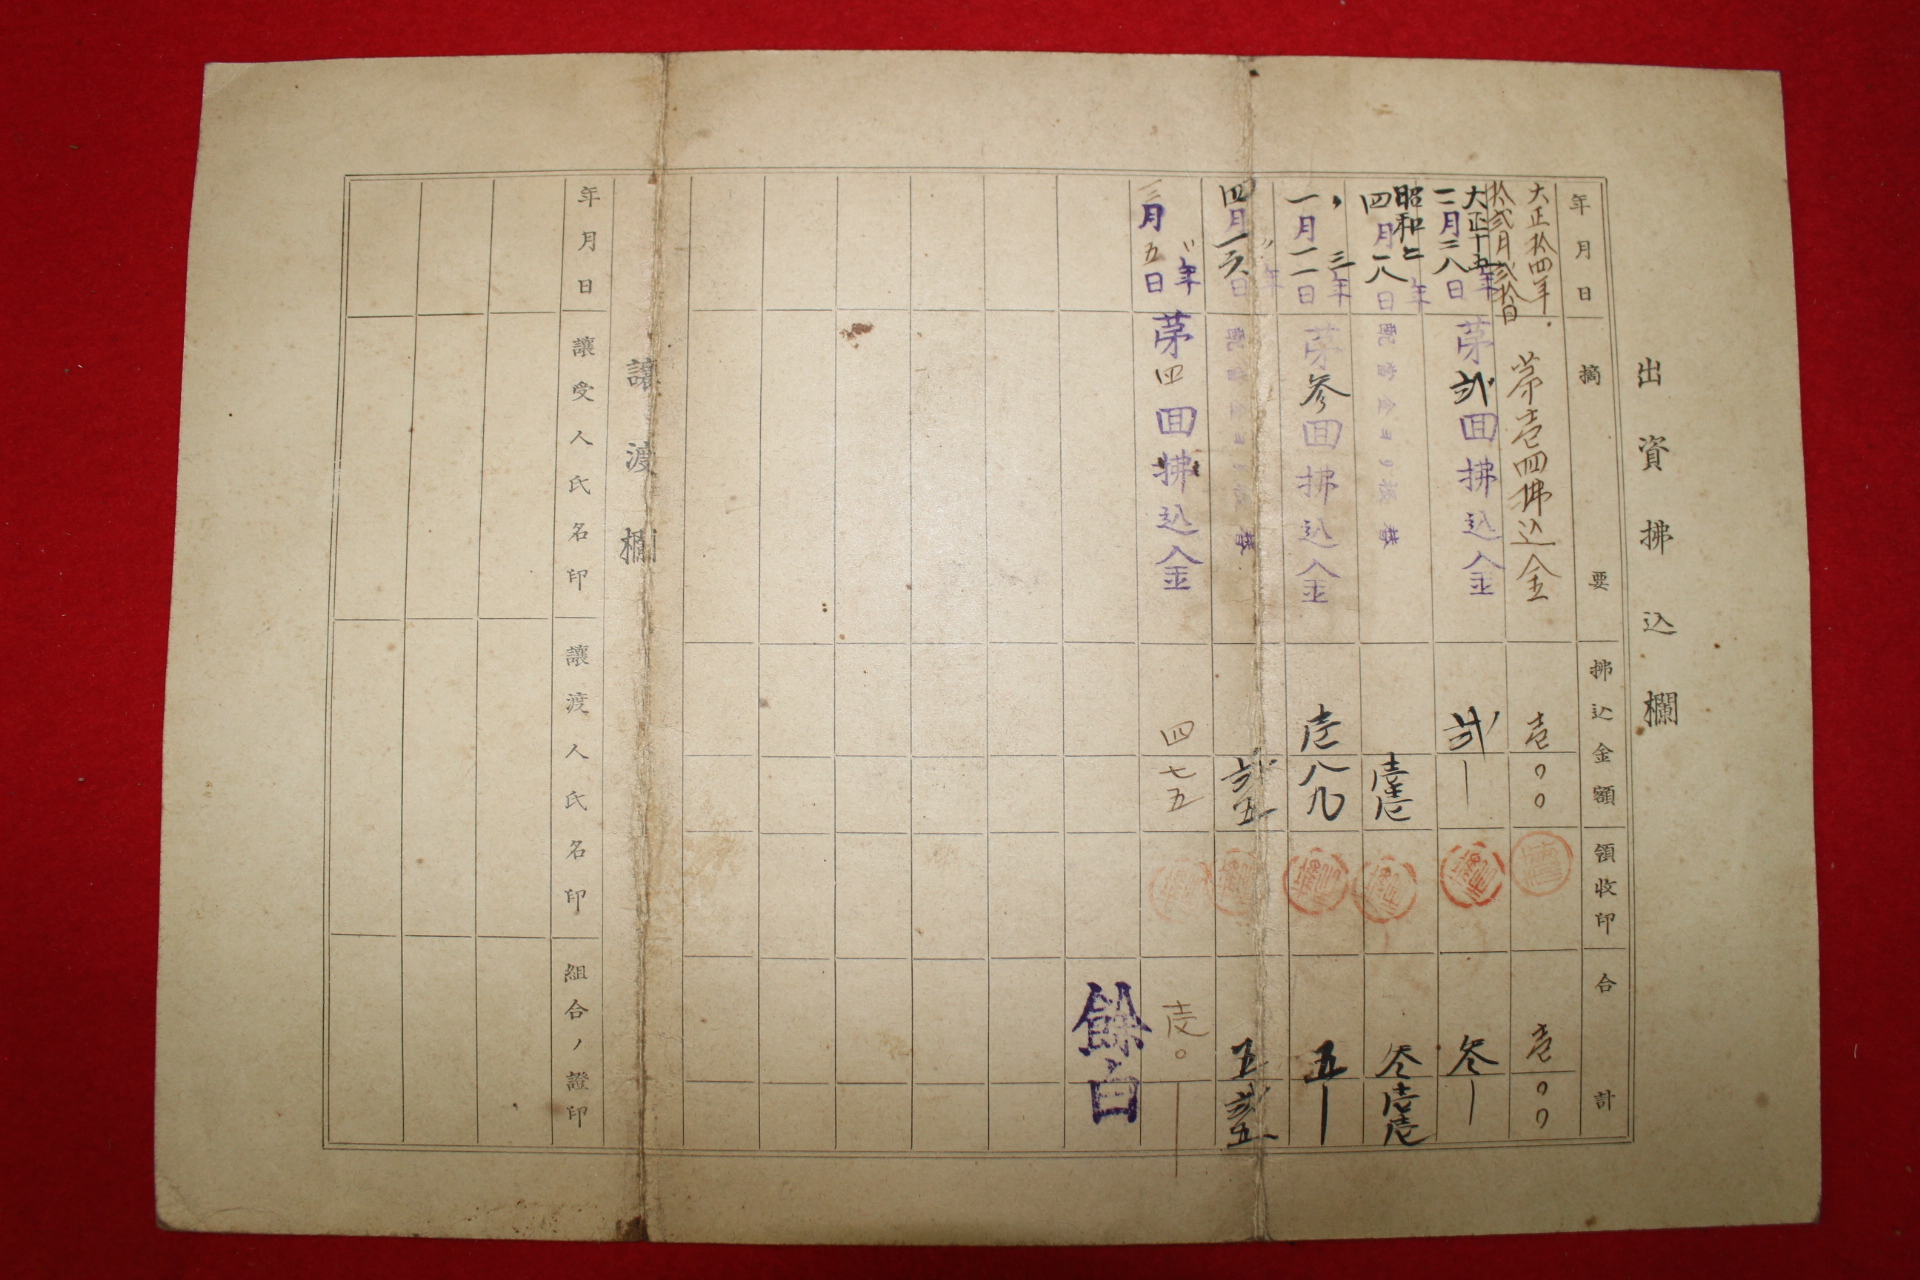 出資拂込欄
年月日
摘要
拂込金額
領收印
合計
大正拾四年
拾貳月貳拾日
第壱回拂込金
壱
〇〇
壱
〇〇
大正十五年
二月二八日
第弐回拂込金
弐
｜
参
｜
昭和二年
四月一八日
配當金ヨリ振替
壱壱
参
壱壱
〃三年
一月一一日
第参回拂込金
壱
八九
五
｜
〃年
四月一六日
配當金ヨリ振替
弐五
五
弐五
〃年
三月五日
第四回拂込金
四
七五
壱〇
｜
餘白
讓渡欄
年月日
讓受人氏名印
讓渡人氏名印
組合ノ證印